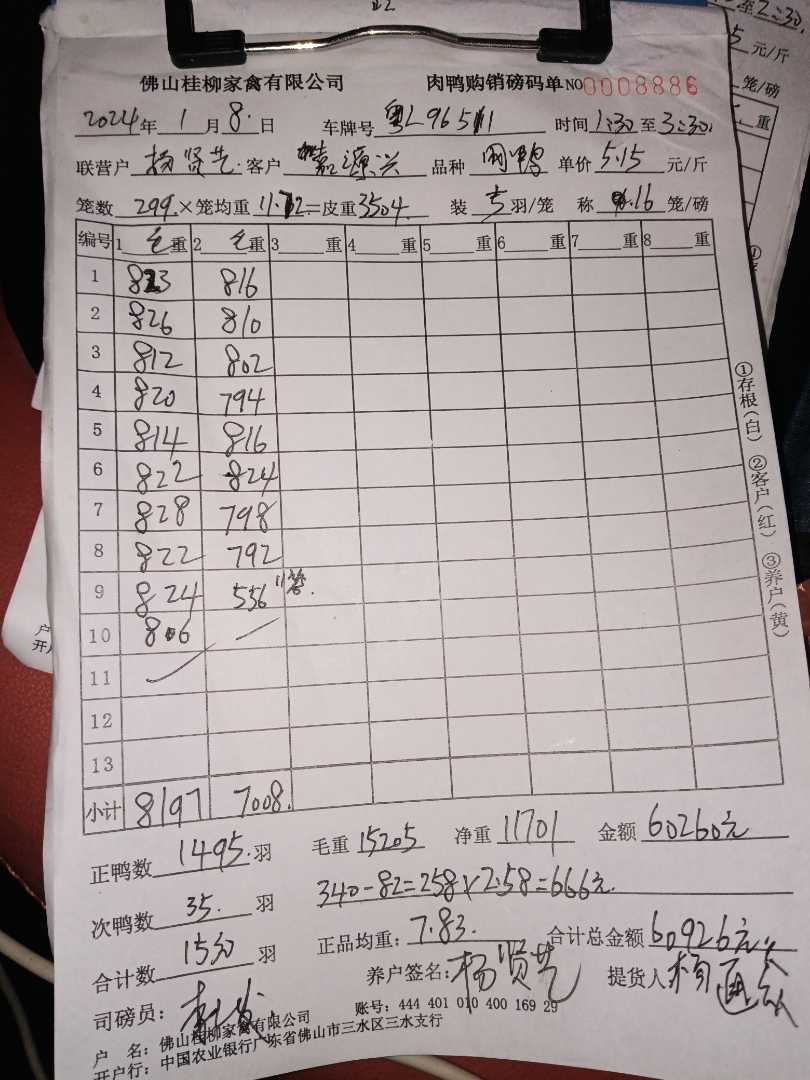 佛山桂柳家禽有限公司 肉鸭购销磅码单 NO0008886
2024年1月8日 车牌号 粤L96511 时间1:30至3:30
联营户 杨贤艺 客户 嘉源兴 品种 单价 5.15 元/斤
笼数 299 ×笼均重 11.72 =皮重 3504 装 5 羽/笼 称 16 笼/磅
编号 1 毛重 2 毛重 3 重 4 重 5 重 6 重 7 重 8 重
1 823 816
2 826 810
3 812 802
4 820 794
5 814 816
6 822 824
7 828 798
8 822 792
9 824 556 11笼
10 806
11
12
13
小计 8197 7008
①存根(白) ②客户(红) ③养户(黄)
正鸭数 1495 羽 毛重 15205 净重 11701 金额 60260元
次鸭数 35 羽 340-82=258×2.58=666元
合计数 1530 羽 正品均重: 7.83 合计总金额 60926元
养户签名: 杨贤艺 提货人
司磅员:
户 名: 佛山桂柳家禽有限公司 账号: 444 401 010 400 169 29
开户行: 中国农业银行广东省佛山市三水区三水支行
至2:30
5 元/斤
笼/磅
重